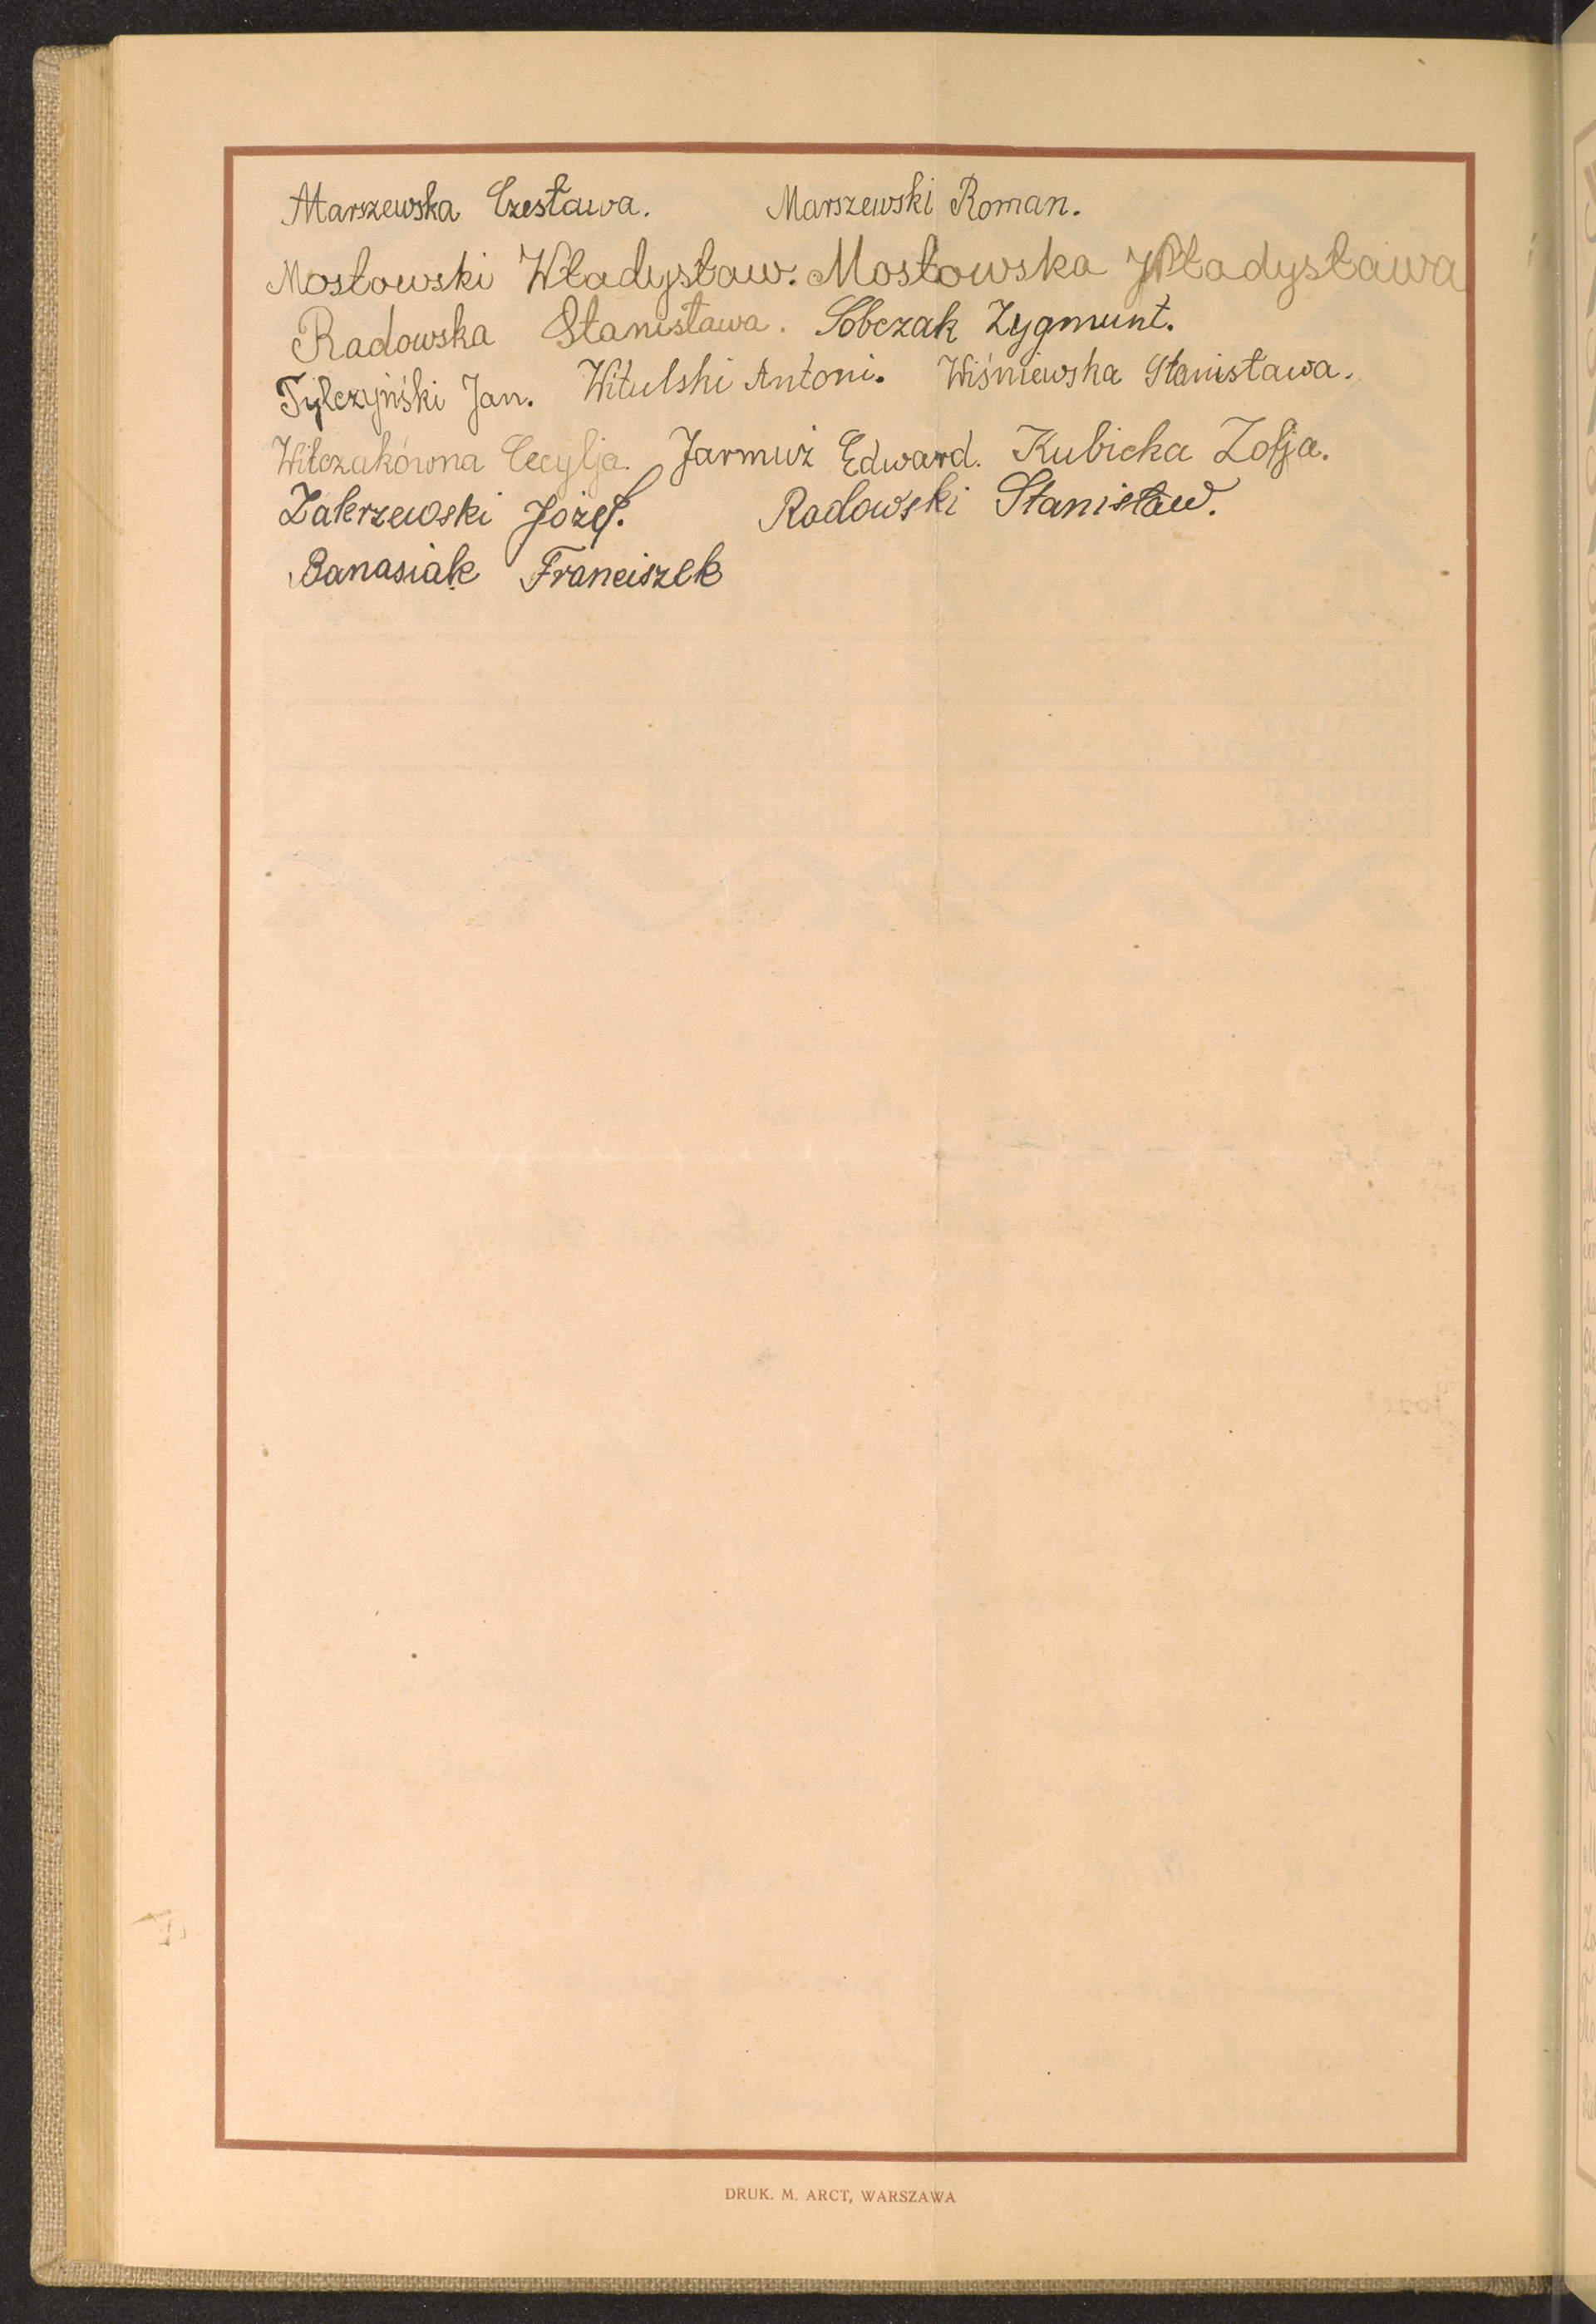 Marszewska Czesława. Marszewski Roman.
Mostowski Władysław. Mostowska Władysława
Radowska Stanisława. Sobczak Zygmunt.
Tylczyński Jan. Witulski Antoni. Wiśniewska Stanisława.
Witczakówna Cecylja. Jarmuż Edward. Kubicka Zofja.
Zakrzewski Józef. Radowski Stanisław.
Banasiak Franciszek
DRUK. M. ARCT, WARSZAWA